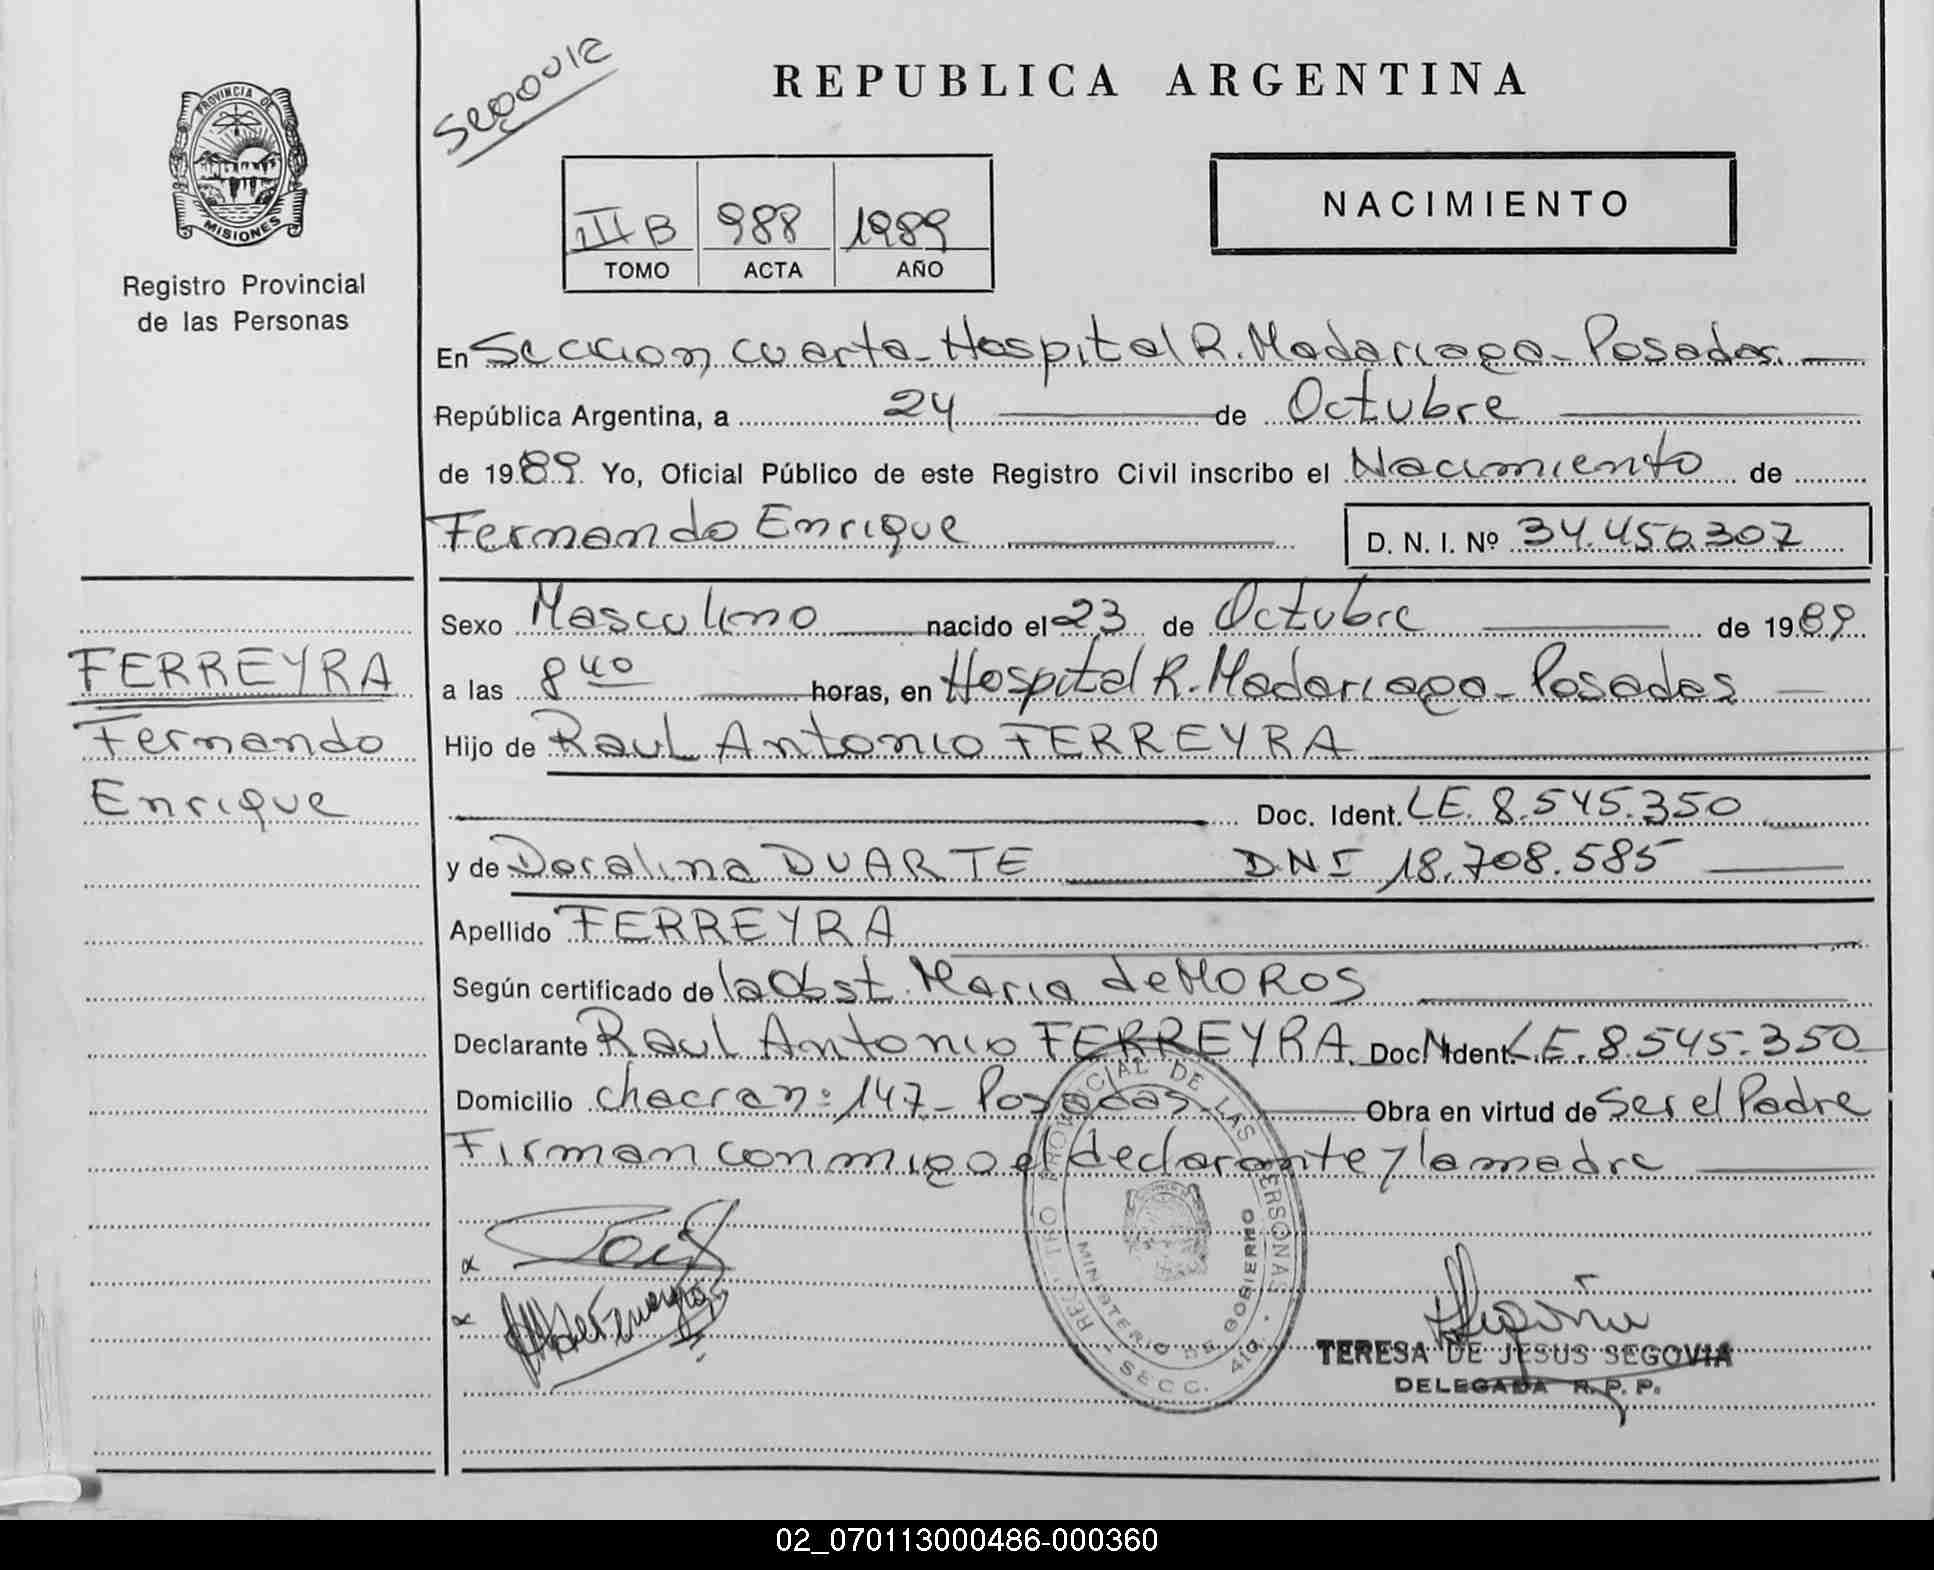 PROVINCIA DE
MISIONES
Registro Provincial
de las Personas
FERREYRA
Fernando
Enrique
REPUBLICA ARGENTINA
NACIMIENTO
III B 988 1989
TOMO ACTA AÑO
En Seccion cuarta - Hospital R. Madariaga - Posadas
República Argentina, a 24 de Octubre
de 1989. Yo, Oficial Público de este Registro Civil inscribo el Nacimiento de
Fernando Enrique D. N. I. Nº 34.450.307
Sexo Masculino nacido el 23 de Octubre de 1989
a las 8 40 horas, en Hospital R. Madariaga - Posadas
Hijo de Raul Antonio FERREYRA
Doc. Ident. LE. 8.545.350
y de Doralina DUARTE DNI 18.708.585
Apellido FERREYRA
Según certificado de la Obst. Maria de MOROS
Declarante Raul Antonio FERREYRA. Doc. Ident. LE. 8.545.350
Domicilio chacra n: 147 - Posadas Obra en virtud de Ser el Padre
Firman conmigo el declarante y la madre
REGISTRO PROVINCIAL DE LAS PERSONAS
MINISTERIO DE GOBIERNO
SECC. 4ta.
TERESA DE JESUS SEGOVIA
DELEGADA R. P. P.
02_070113000486-000360